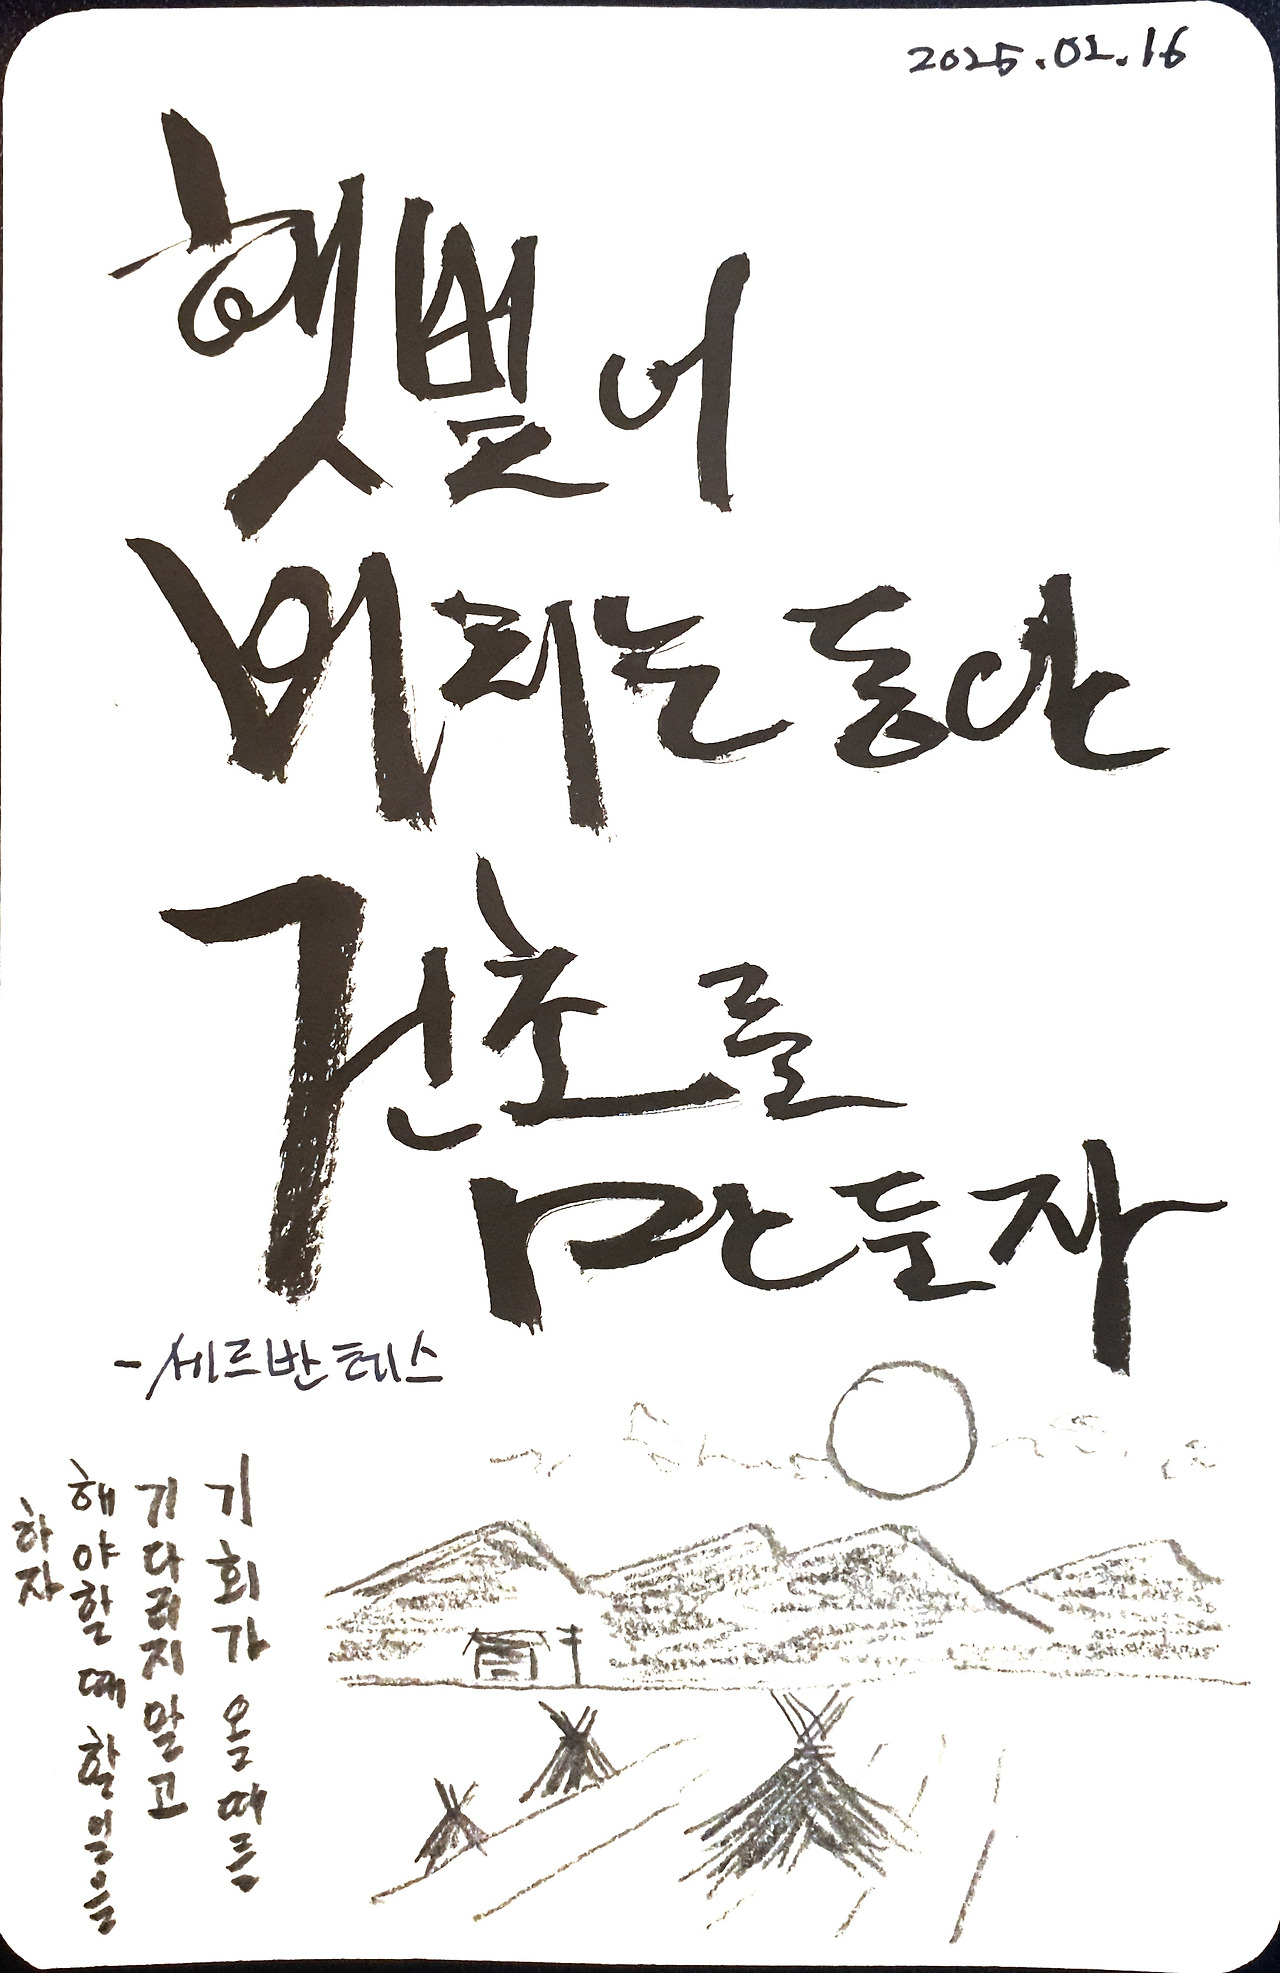 2025.02.16
햇볕이
비치는 동안
건초를
만들자
-세르반테스
기회가 올 때를
기다리지 말고
해야할 때 할일을
하자